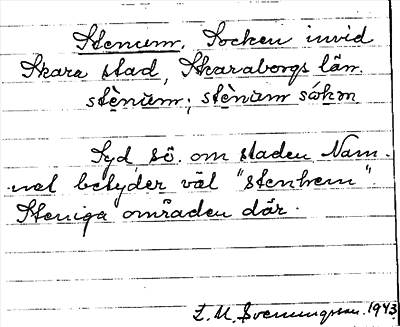 Stenum. Socken invid
Skara stad, Skaraborgs län.
stènum; stènum såkm
Syd sö. om staden Nam-
net betyder väl "stenhem".
Steniga områden där.
L. M. Svenningsson. 1943